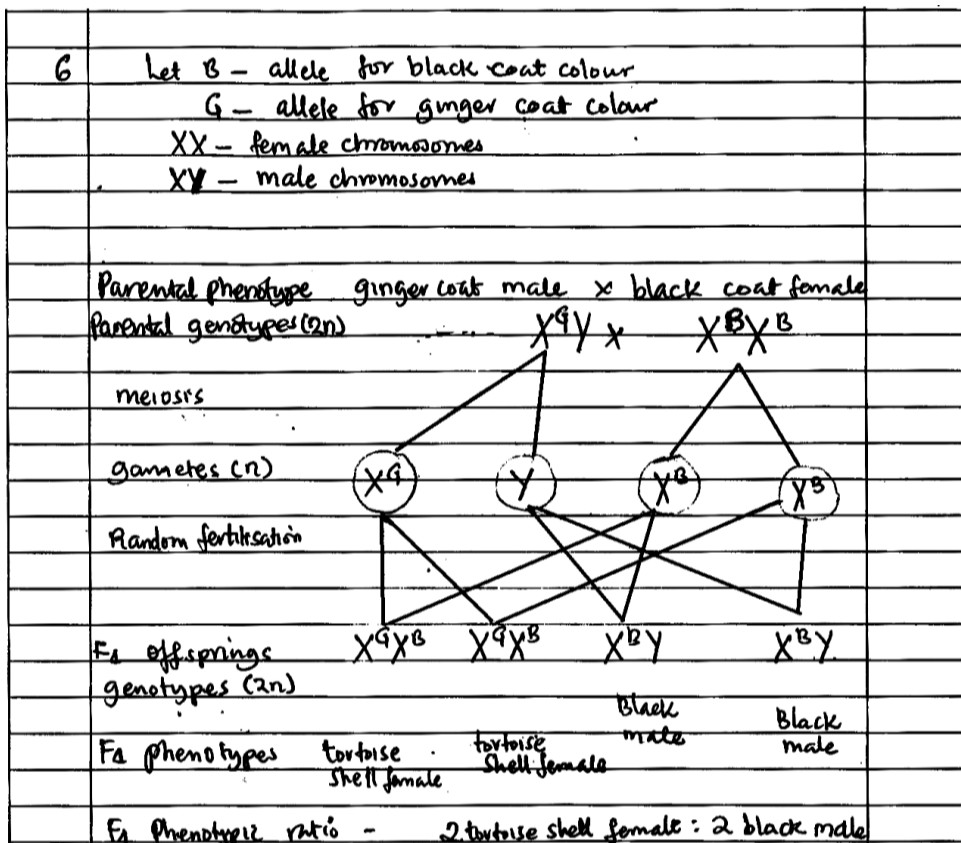 6 Let B - allele for black coat colour
G - allele for ginger coat colour
XX - female chromosomes
XY - male chromosomes
Parental phenotype ginger coat male x black coat female
Parental genotypes (2n) X^G Y x X^B X^B
meiosis
gametes (n) X^G Y X^B X^B
Random fertilisation
F1 offsprings X^G X^B X^G X^B X^B Y X^B Y
genotypes (2n)
F1 phenotypes tortoise shell female tortoise shell female Black male Black male
F1 Phenotypic ratio - 2 tortoise shell female : 2 black male